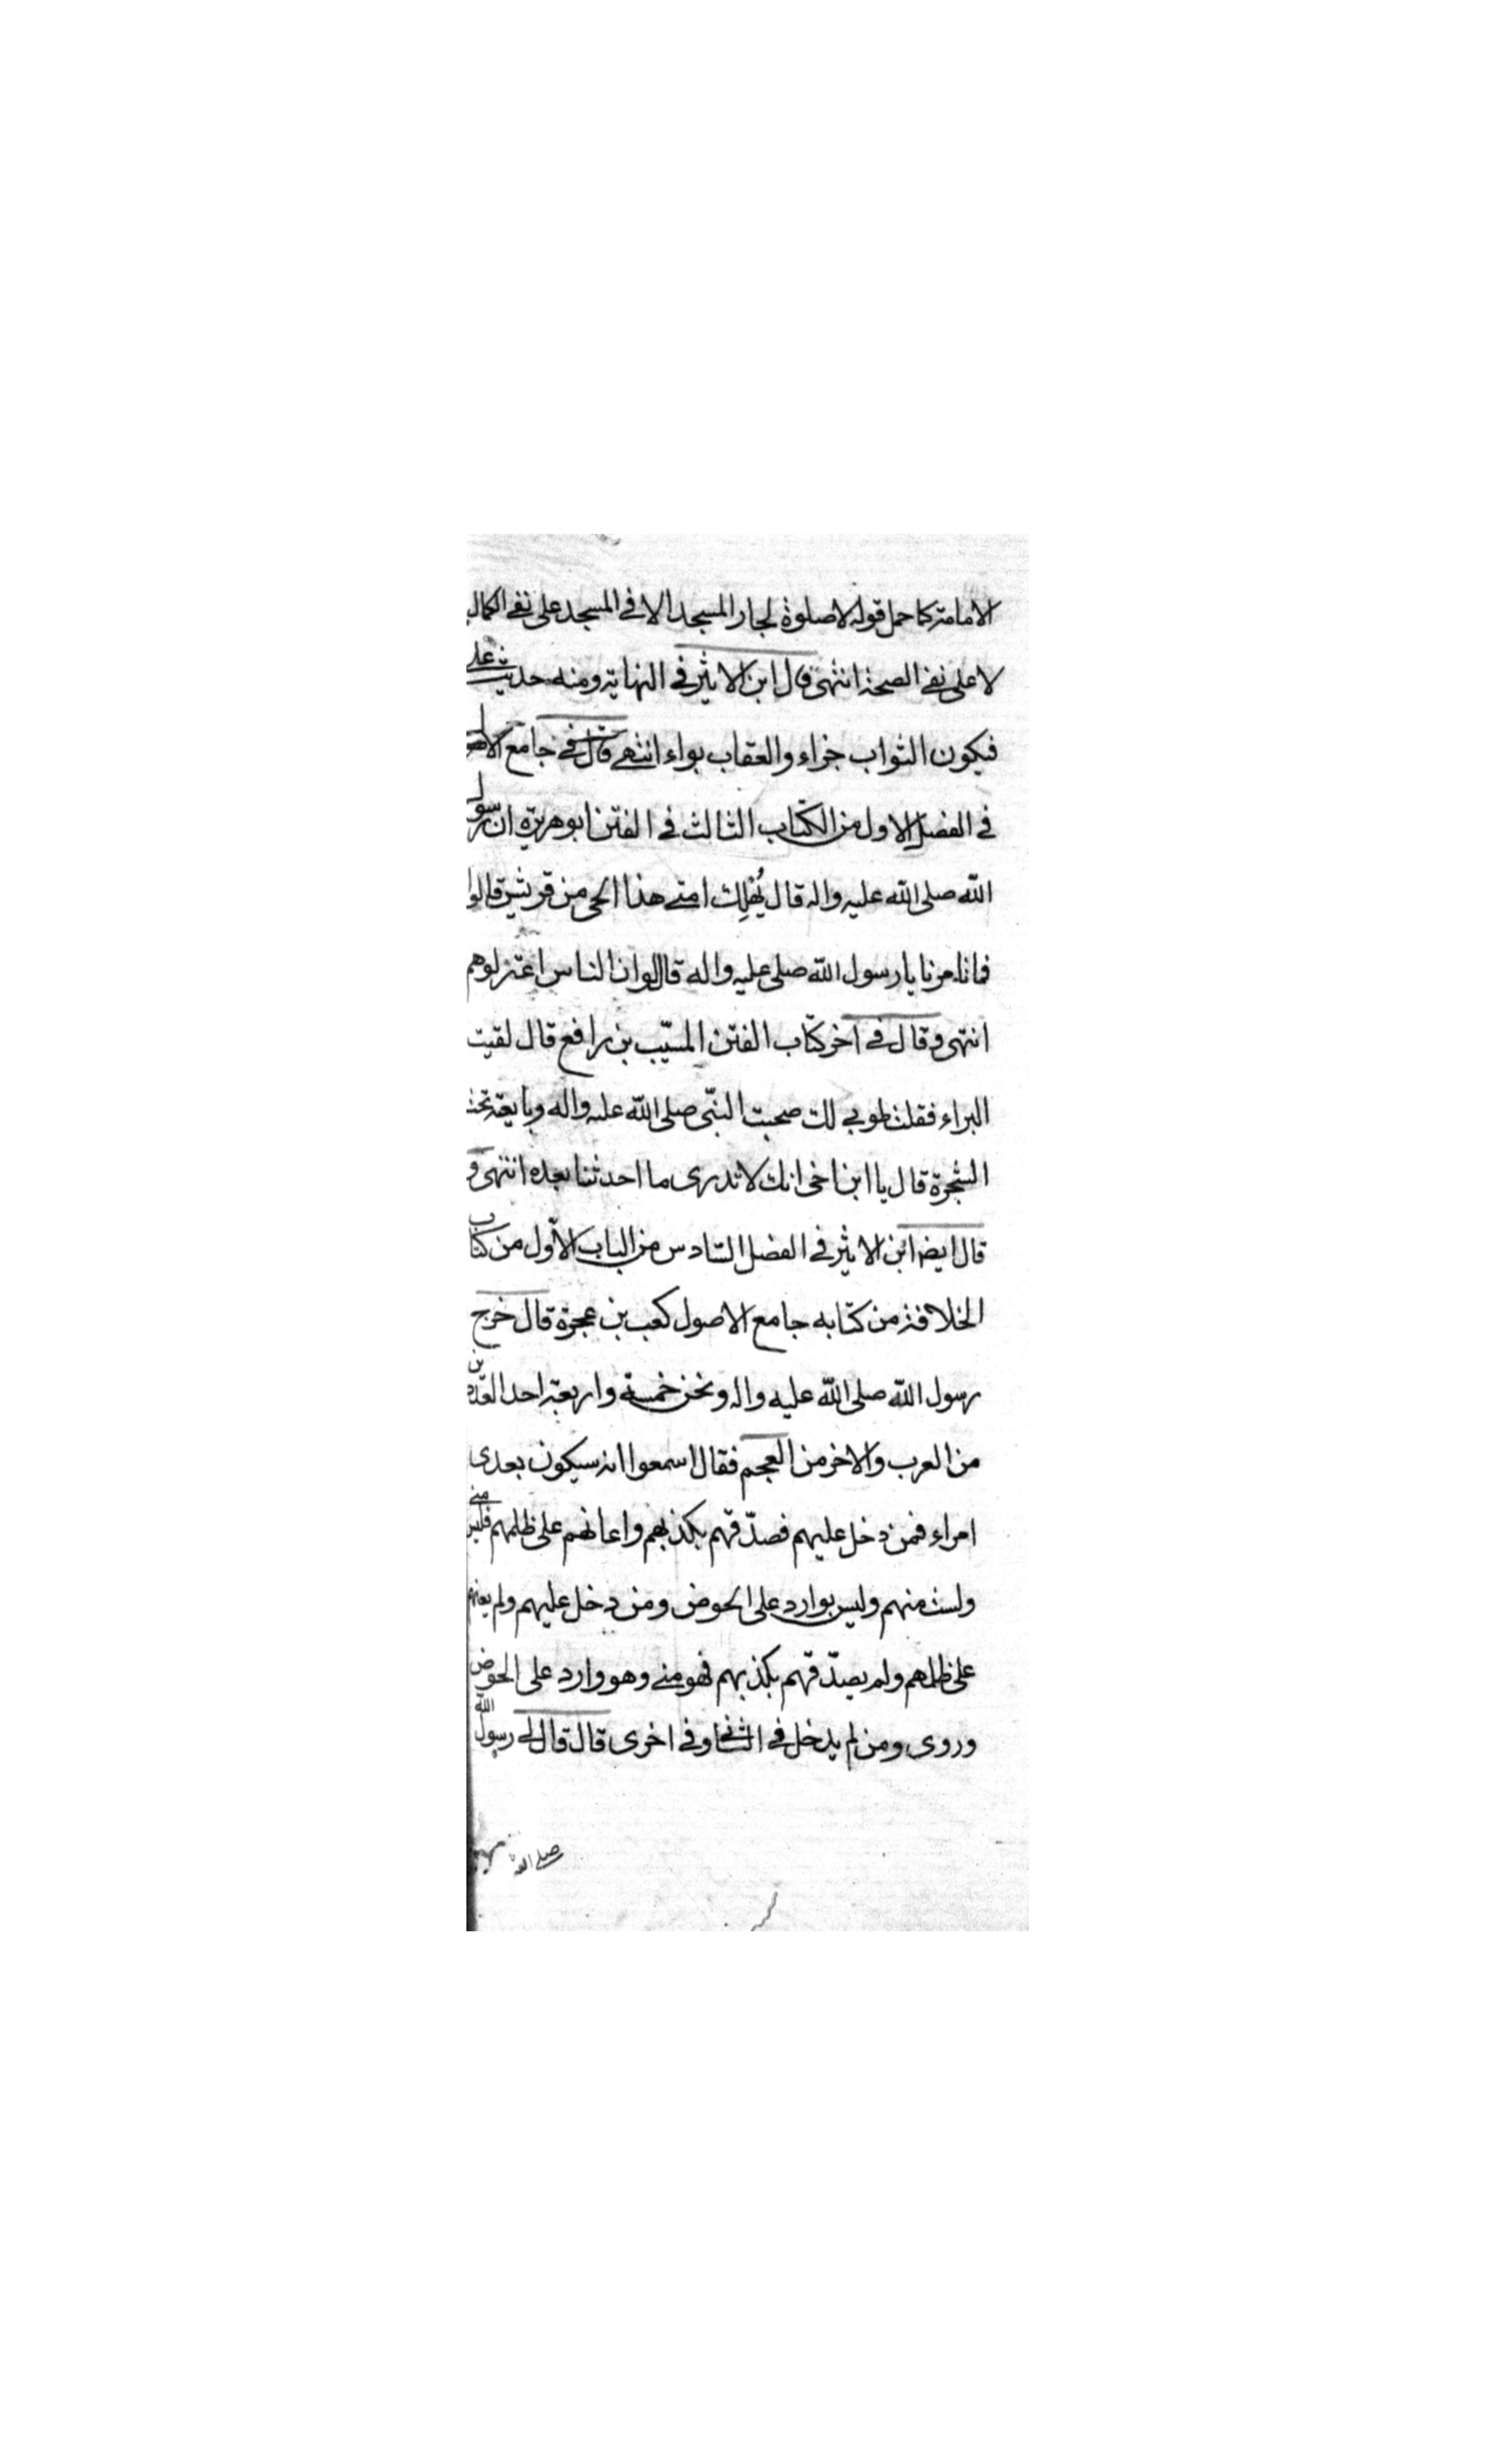 الامامة كما حمل قوله لا صلوة لجار المسجد الا في المسجد على نفي الكمال
لا على نفي الصحة انتهى قال ابن الاثير في النهاية ومنه حديث علي
فيكون الثواب جزاء والعقاب بواء انتهى قال في جامع الاصول
في الفصل الاول من الكتاب الثالث في الفتن ابو هريرة ان رسول
الله صلى الله عليه واله قال يُهْلِك امتي هذا الحي من قريش قالوا
فما تامرنا يا رسول الله صلى عليه واله قال لو ان الناس اعتزلوهم
انتهى وقال في اخر كتاب الفتن المسيّب بن رافع قال لقيت
البراء فقلت طوبى لك صحبت النبّي صلى الله عليه واله وبايعته تحت
الشجرة قال يا ابن اخي انك لا تدرى ما احدثنا بعده انتهى و
قال ايضا ابن الاثير في الفصل السّادس من الباب الاوّل من كتاب
الخلافة من كتابه جامع الاصول كعب بن عجرة قال خرج
رسول الله صلى الله عليه واله ونحن خمسة واربعة احد العدّين
من العرب والاخر من العجم فقال اسمعوا انه سيكون بعدى
امراء فمن دخل عليهم فصدّقهم بكذبهم واعانهم على ظلمهم فليس منى
ولست منهم وليس بوارد على الحوض ومن دخل عليهم ولم يعنهم
على ظلمهم ولم يصدّقهم بكذبهم فهو منى وهو وارد على الحوض
وروى ومن لم يدخل في او في اخرى قال قال لي رسول الله
صلى الله